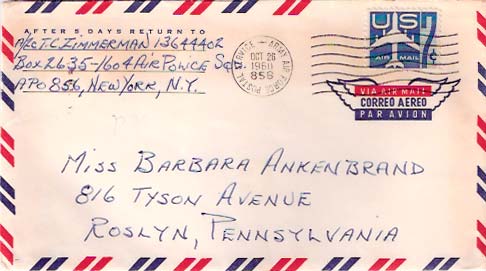 AFTER 5 DAYS RETURN TO
A/2c T.C. ZIMMERMAN 13644402
BOX 2635-1604 AIR POLICE Sqd.
APO 856, NEW YORK, N.Y.
ARMY AIR FORCE POSTAL SERVICE
OCT 26
1960
856
US
7¢
AIR MAIL
VIA AIR MAIL
CORREO AEREO
PAR AVION
MISS BARBARA ANKENBRAND
816 TYSON AVENUE
ROSLYN, PENNSYLVANIA